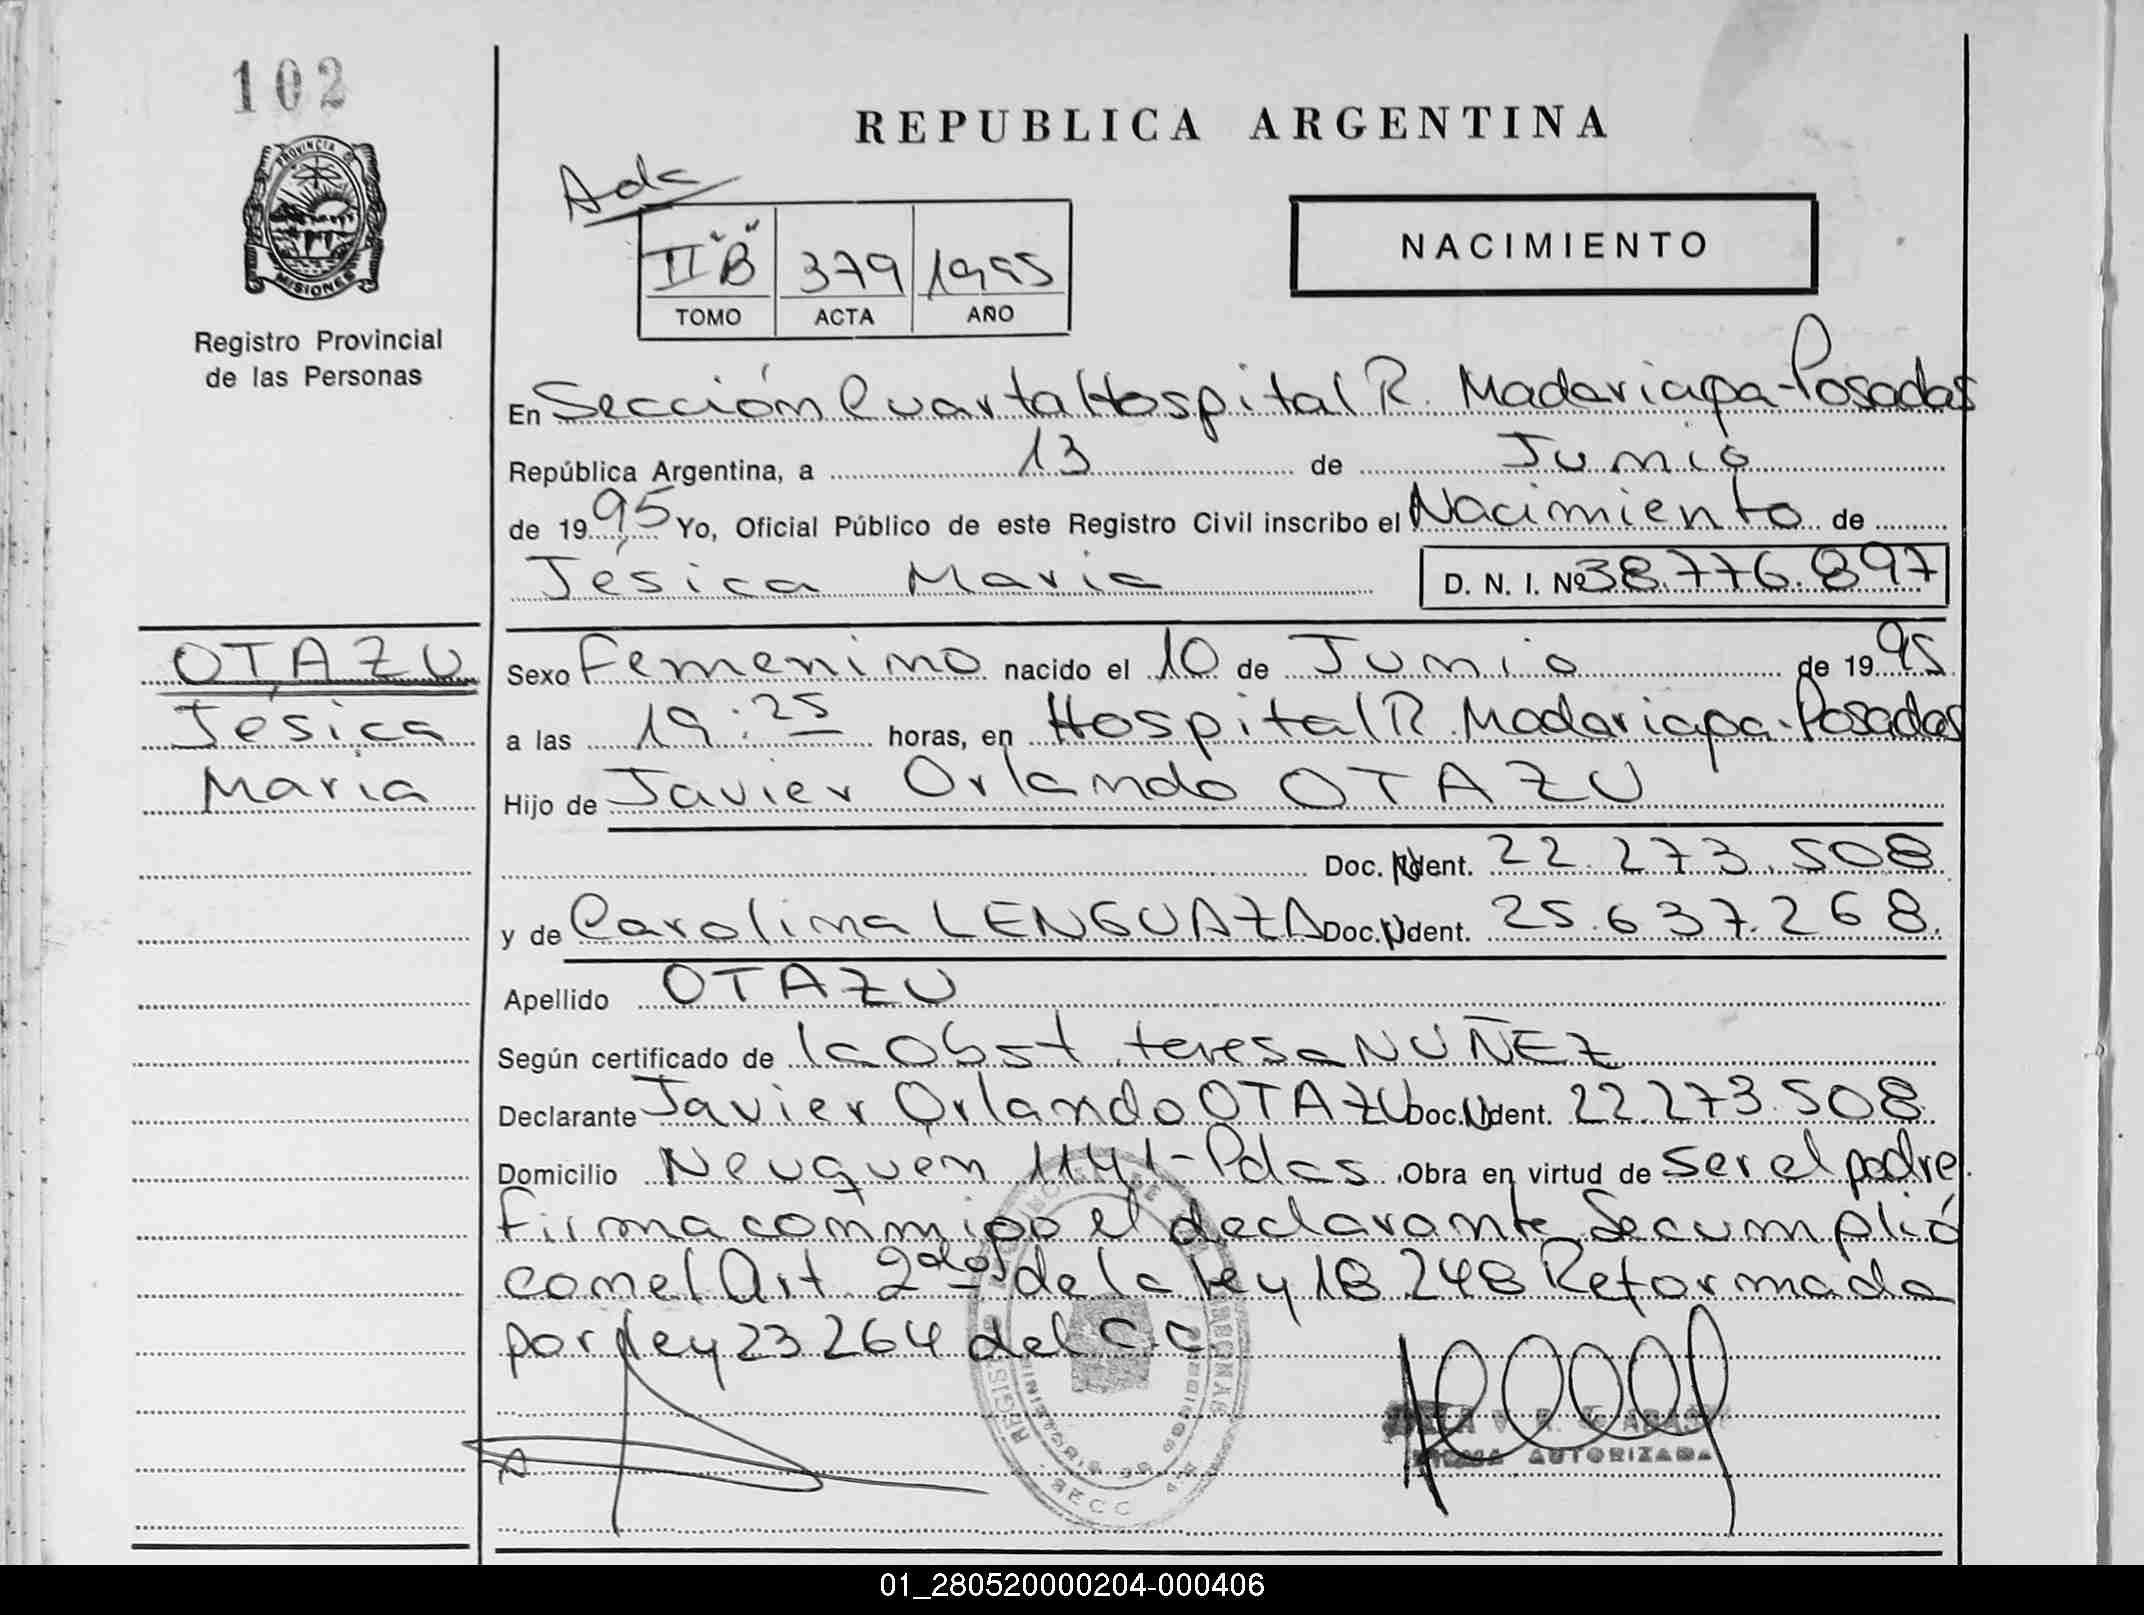 102
REPUBLICA ARGENTINA
PROVINCIA DE
MISIONES
Registro Provincial
de las Personas
Ada
II "B" 379 1995
TOMO ACTA AÑO
NACIMIENTO
En Sección Cuarta Hospital R. Madariaga - Posadas
República Argentina, a 13 de Junio
de 1995 Yo, Oficial Público de este Registro Civil inscribo el Nacimiento de
Jésica Maria D. N. I. Nº 38.776.897
OTAZU
Jésica
Maria
Sexo Femenino nacido el 10 de Junio de 1995
a las 19:25 horas, en Hospital R. Madariaga - Posadas
Hijo de Javier Orlando OTAZU
Doc. Ident. 22.273.508
y de Carolina LENGUAZA Doc. Ident. 25.637.268.
Apellido OTAZU
Según certificado de la Obst teresa NUÑEZ
Declarante Javier Orlando OTAZU Doc. Ident. 22.273.508
Domicilio Neuquen 1141 - Pdas. Obra en virtud de ser el padre.
Firma conmigo el declarante Se cumplió
con el Art. 2do de la ley 18.248 Reformada
por ley 23.264 del C.C.
AUTORIZADA
01_280520000204-000406